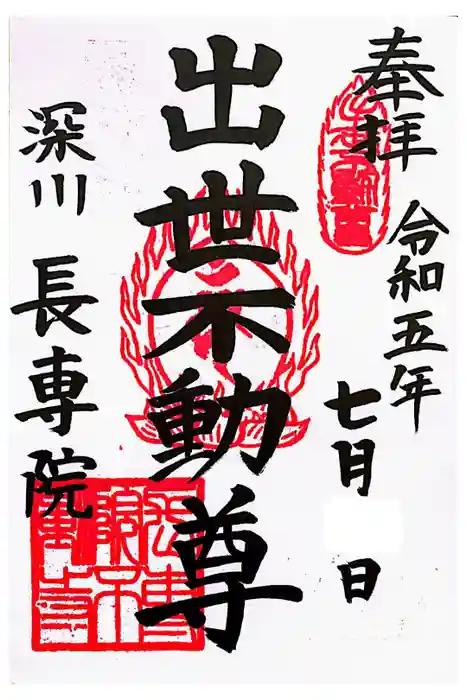 奉拝
令和五年
七月 日
出世不動尊
深川 長専院